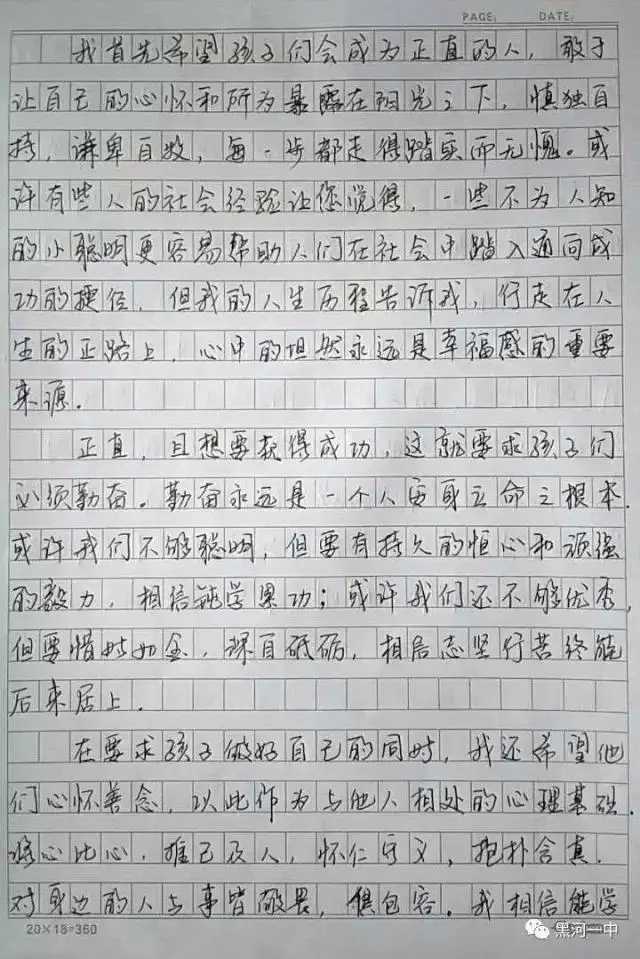 PAGE: DATE:
我首先希望孩子们会成为正直的人，敢于
让自己的心怀和所为暴露在阳光之下，慎独自
持，谦卑自牧，每一步都走得踏实而无愧。或
许有些人的社会经验让您觉得，一些不为人知
的小聪明更容易帮助人们在社会中踏入通向成
功的捷径，但我的人生历程告诉我，行走在人
生的正路上，心中的坦然永远是幸福感的重要
来源。
正直，且想要获得成功，这就要求孩子们
必须勤奋。勤奋永远是一个人安身立命之根本。
或许我们不够聪明，但要有持久的恒心和顽强
的毅力，相信钝学累功；或许我们还不够优秀，
但要惜时如金，琢自砥砺，相信志坚行苦终能
后来居上。
在要求孩子做好自己的同时，我还希望他
们心怀善念，以此作为与他人相处的心理基础。
将心比心，推己及人，怀仁守义，抱朴含真。
对身边的人与事皆敬畏，俱包容。我相信能学
20×18=360
黑河一中